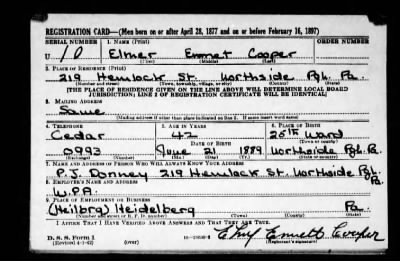 REGISTRATION CARD—(Men born on or after April 28, 1877 and on or before February 16, 1897)
SERIAL NUMBER 1. NAME (Print) ORDER NUMBER
U 10 Elmer Emmet Cooper
(First) (Middle) (Last)
2. PLACE OF RESIDENCE (Print)
219 Hemlock St. Northside Pgh. Pa.
(Number and street) (Town, township, village, or city) (County) (State)
[THE PLACE OF RESIDENCE GIVEN ON THE LINE ABOVE WILL DETERMINE LOCAL BOARD
JURISDICTION; LINE 2 OF REGISTRATION CERTIFICATE WILL BE IDENTICAL]
3. MAILING ADDRESS
Same
[Mailing address if other than place indicated on line 2. If same insert word same]
4. TELEPHONE 5. AGE IN YEARS 6. PLACE OF BIRTH
Cedar 42 25th Ward
DATE OF BIRTH (Town or county)
0993 June 21 1889 Northside Pgh. Pa.
(Exchange) (Number) (Mo.) (Day) (Yr.) (State or country)
7. NAME AND ADDRESS OF PERSON WHO WILL ALWAYS KNOW YOUR ADDRESS
P.J. Donney 219 Hemlock St. Northside Pgh. Pa.
8. EMPLOYER'S NAME AND ADDRESS
W.P.A.
9. PLACE OF EMPLOYMENT OR BUSINESS
(Heilbrg) Heidelberg Pa
(Number and street or R. F. D. number) (Town) (County) (State)
I AFFIRM THAT I HAVE VERIFIED ABOVE ANSWERS AND THAT THEY ARE TRUE.
D. S. S. Form 1
(Revised 4-1-42) (over) Elmer Emmett Cooper
(Registrant's signature)